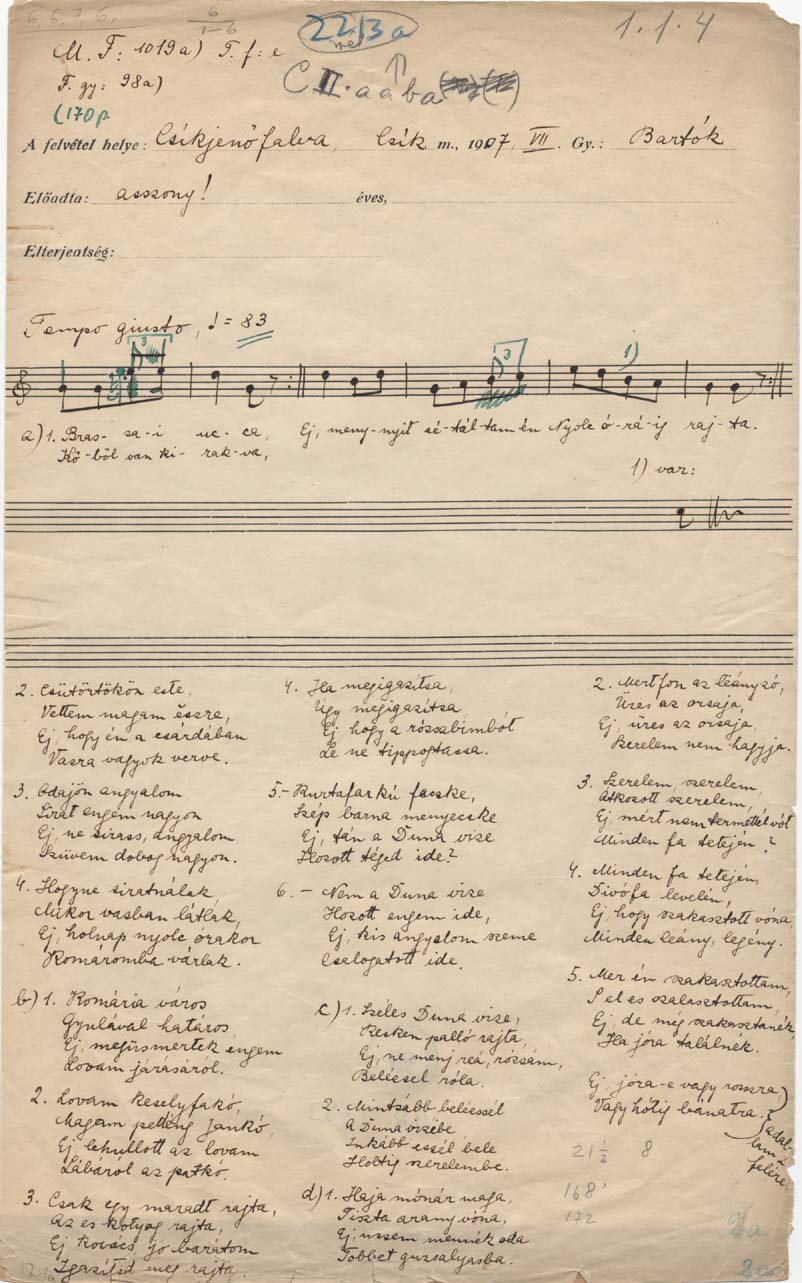 6, 6, 7, 6,
6
1-6
2213a
1.1.4
M. F: 1019a) T. f: e
F. gy: 98a)
C II. a a b a
(170 p.
A felvétel helye: Csíkjenőfalva, Csík m., 1907, VII. Gy.: Bartók
Előadta: asszony! éves,
Elterjentség:
Tempo giusto, ♩ = 83
3
3
1)
a) 1. Bras- sa- i uc- ca, Ej, meny-nyit sé-tál-tam én Nyolc ó-rá-ig raj-ta.
Kő-ből van ki- rak-va,
1) var:
2. Csütörtökön este,
Vettem magam észre,
Ej, hogy én a csárdában
Vasra vagyok verve.
3. Odajön angyalom
Sirat engem nagyon
Ej, ne sirass, angyalom
Szüvem dobog nagyon.
4. Hogyne siratnálak,
Mikor vasban látlak,
Ej, holnap nyolc órakor
Komáromba várlak.
b) 1. Komária város
Gyulával határos,
Ej, megüsmertek engem
Lovam járásáról.
2. Lovam keselyfakó,
Magam petting jankó,
Ej lehullott az lovam
Lábáról az patkó.
3. Csak egy maradt rajta,
Az es kotyog rajta,
Ej kovács, jó barátom
Igazítsd meg rajta.
4. Ha megigazítsa,
Úgy megigazítsa
Ej hogy a rózsabimbót
Le ne tippogtassa.
5. - Kurtafarkú fecske,
Szép barna menyecske
Ej, tán a Duna vize
Hozott téged ide?
6. - Nem a Duna vize
Hozott engem ide,
Ej, kis angyalom szeme
Csalogatott ide.
c) 1. Széles Duna vize,
Kesken palló rajta,
Ej, ne menj reá, rózsám,
Beléesel róla.
2. Mintsább beléessél
A Duna vizébe
Inkább essél bele
Holtig szerelembe.
d) 1. Haja mónár maga,
Tiszta arany vóna,
Ej, ussem mennék oda
Többet guzsalyasba.
2. Mert fon az leányzó,
Üres az orsója,
Ej, üres az orsója,
Szerelem nem hagyja.
3. Szerelem, szerelem,
Átkozott szerelem,
Ej, mért nem termettél vót
Minden fa tetején?
4. Minden fa tetején,
Divófa levelén,
Ej, hogy szakasztott vóna,
Minden leány, legény.
5. Mer én szakasztottam,
S el es szalasztottam,
Ej, de még szakasztanék,
Ha jóra találnék.
Ej, jóra-e vagy rosszra,
Vagy hótig bánatra.
felére.
21 1/2 8
168'
172
2a